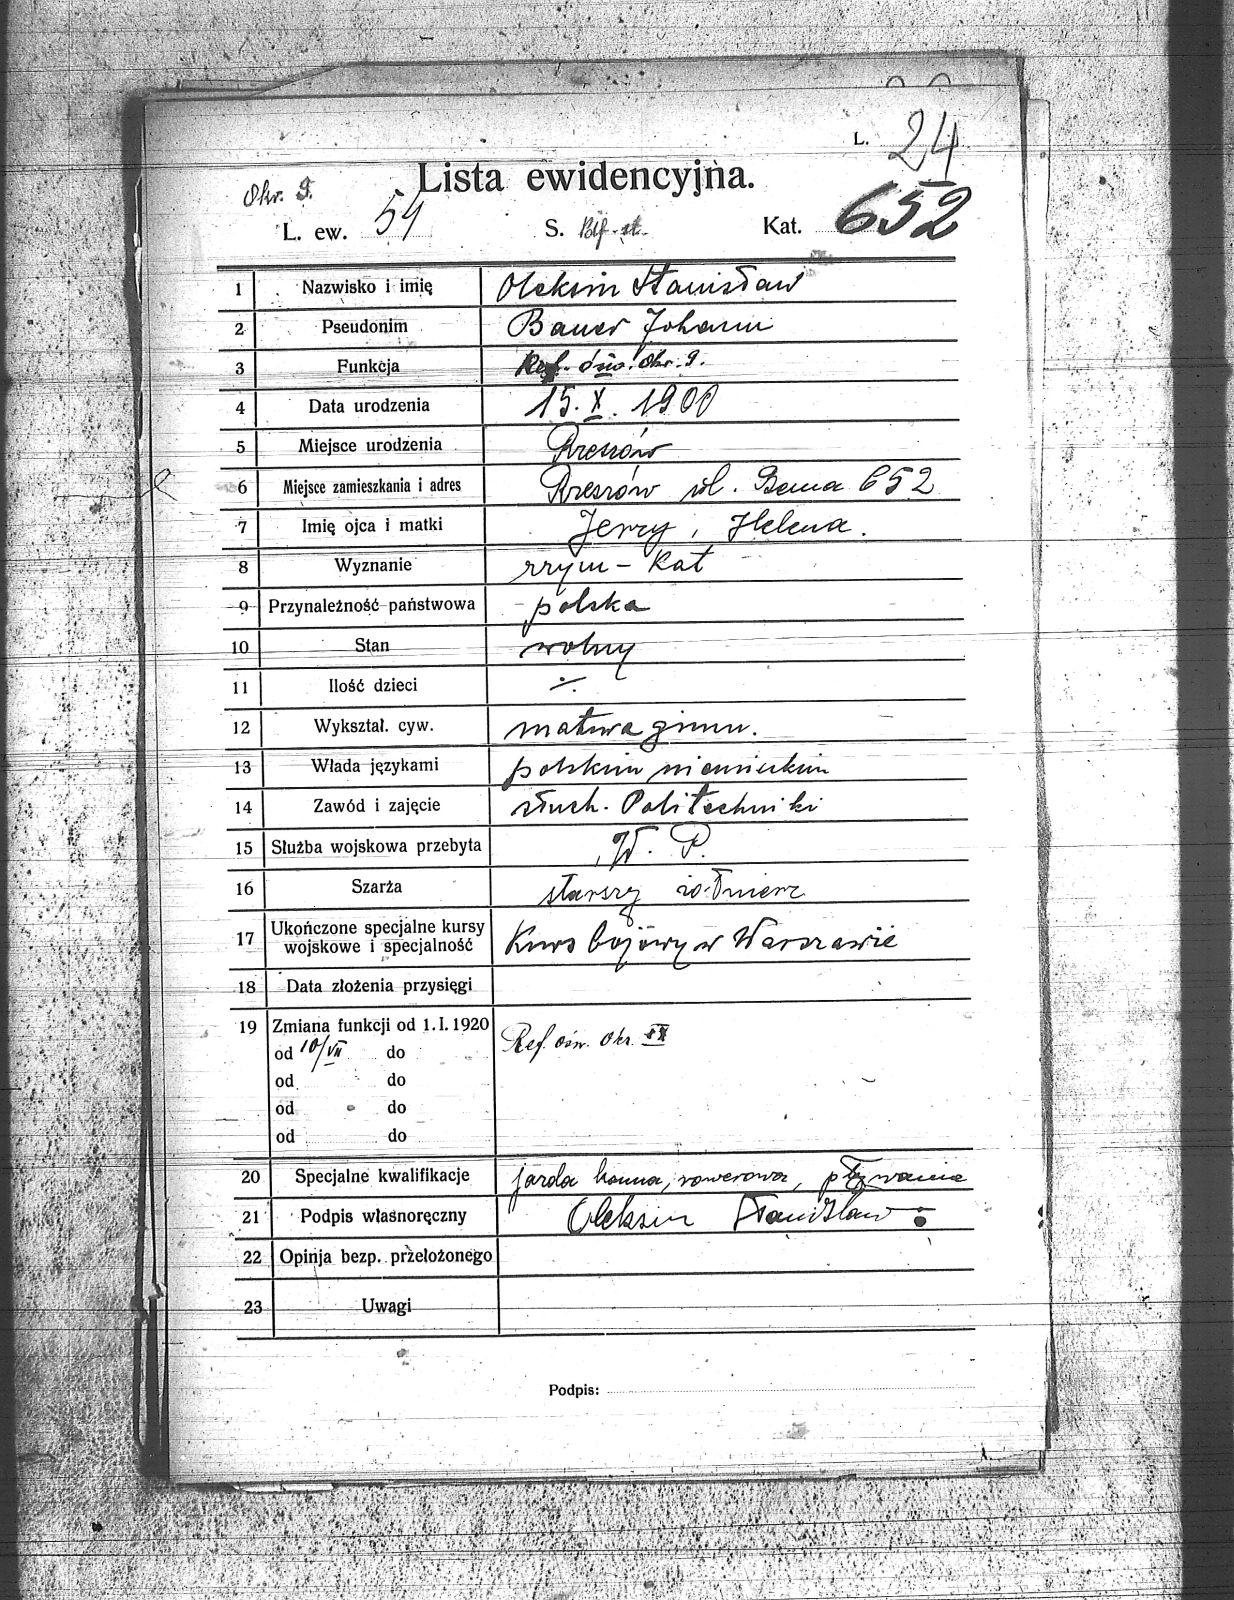 L. 24
Lista ewidencyjna.
Okr. 9.
L. ew. 54 S. Kat. 652
1 Nazwisko i imię Oleksin Stanisław
2 Pseudonim Bauer Johann
3 Funkcja Ref. ośw. Okr. 9.
4 Data urodzenia 15. X. 1900
5 Miejsce urodzenia Rzeszów
6 Miejsce zamieszkania i adres Rzeszów ul. Bema 652
7 Imię ojca i matki Jerzy, Helena.
8 Wyznanie rzym-kat
9 Przynależność państwowa polska
10 Stan wolny
11 Ilość dzieci ./.
12 Wykształ. cyw. matura gimn.
13 Włada językami polskim niemieckim
14 Zawód i zajęcie słuch. Politechniki
15 Służba wojskowa przebyta W. P.
16 Szarża starszy żołnierz
17 Ukończone specjalne kursy
wojskowe i specjalność Kurs bojowy w Warszawie
18 Data złożenia przysięgi
19 Zmiana funkcji od 1. I. 1920 Ref. ośw. Okr. IX
od 10/VII do
od do
od do
od do
20 Specjalne kwalifikacje jazda konna, rowerowa, pływanie
21 Podpis własnoręczny Oleksin Stanisław
22 Opinja bezp. przełożonego
23 Uwagi
Podpis: